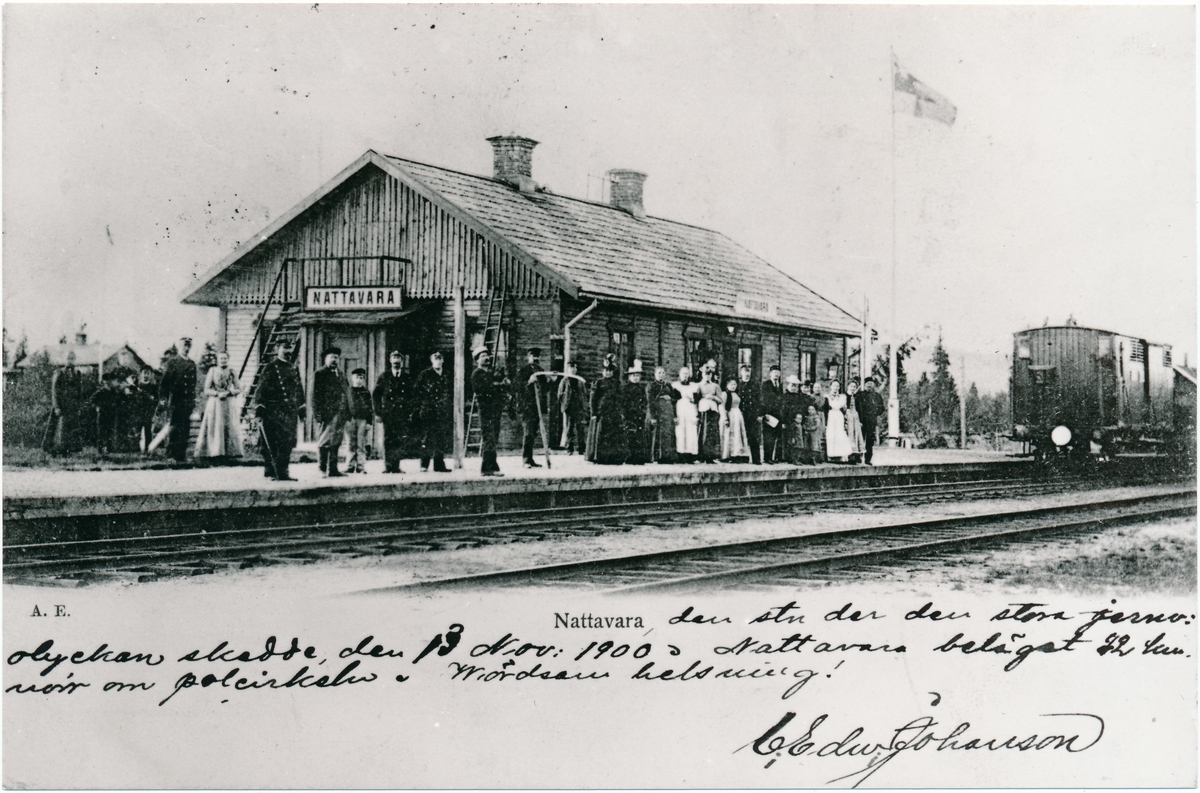 NATTAVARA
NATTAVARA
A. E.
Nattavara, den stn der den stora jernv:
olyckan skedde, den 13 Nov: 1900. Nattavara beläget 32 km.
norr om polcirkeln. Wördsam helsning!
C. Edw. Johanson